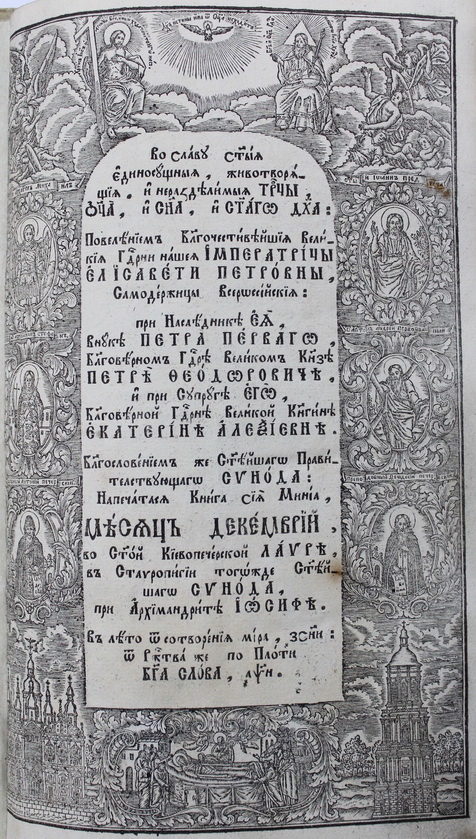 Во славу ст҃ыѧ
є҆диносущныѧ, животворѧ-
щїѧ, и҆ нераздѣлимыѧ трⷪ҇цы,
ѻ҆ц҃а, и҆ сн҃а, и҆ ст҃агѡ дх҃а:
Повелѣнїемъ Благочестивѣйшїѧ Вели-
кїѧ Гдⷭ҇рни нашеѧ ІМПЕРАТРІ́ЦЫ
Є҆ЛІСАВЕ́ТИ ПЕТРО́ВНЫ,
Самодержицы Всерѡссійскїѧ:
при Наслѣдникѣ Є҆Ѧ̀,
Внукѣ ПЕТРА ПЕ́РВАГѠ,
Благовѣрномъ Гдⷭ҇рѣ Великомъ Кн҃зѣ
ПЕТРѢ̀ ѲЕО́ДѠРОВИЧѢ,
и҆ при Супругѣ Є҆ГѠ̀,
Благовѣрной Гдⷭ҇рнѣ Великой Кн҃гинѣ
Є҆КАТЕРІ́НѢ АЛЕѮІ́ЕВНѢ.
Благословенїемъ же Ст҃ѣйшагѡ Прави-
телствующагѡ СѴНО́ДА:
Напечатасѧ Книга сїѧ Минїа,
МѢ́СѦЦЪ ДЕКЕ́МВРІЙ,
во Ст҃ой Кїевопечерской ЛА́ѴРѢ,
въ Ставропигїи тогѡжде Ст҃ѣй-
шагѡ СѴНО́ДА,
при Архїмандритѣ І҆Ѡ́СИФѢ.
Въ лѣто ѿ сотворенїѧ мїра, ҂зсни:
ѿ Ржⷭ҇тва же по Плоти
БГ҃А СЛО́ВА, ҂аѱн.